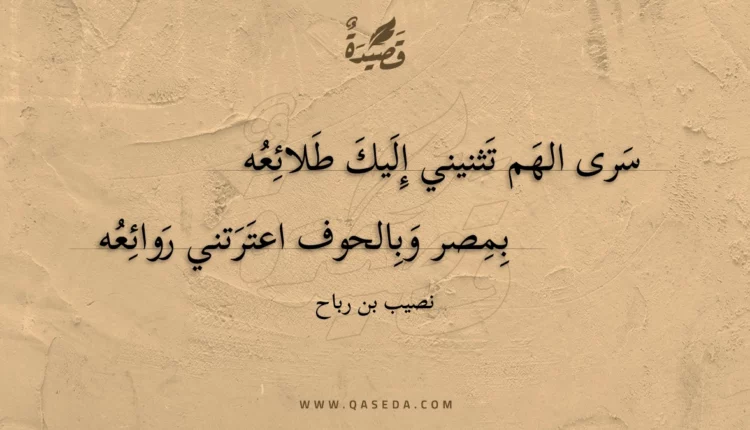 قَصِيْدَةٌ
سَرى الهَم تَثنيني إِلَيكَ طَلائِعُه
بِمِصر وَبِالحوف اعتَرَتني رَوائِعُه
نصيب بن رباح
WWW.QASEDA.COM